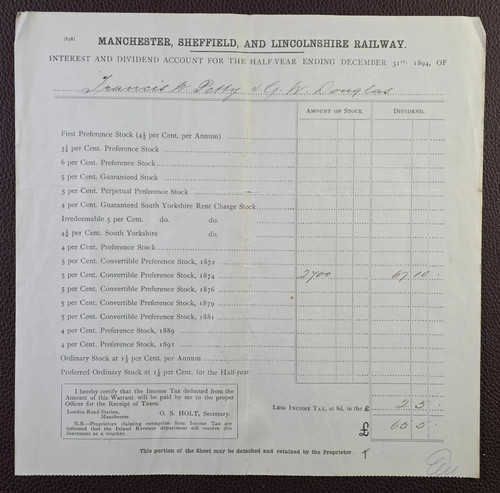 (648)
MANCHESTER, SHEFFIELD, AND LINCOLNSHIRE RAILWAY.
INTEREST AND DIVIDEND ACCOUNT FOR THE HALF-YEAR ENDING DECEMBER 31ST. 1894, OF
Francis W. Petty & G. W. Douglas
AMOUNT OF STOCK. DIVIDEND.
First Preference Stock (4½ per Cent. per Annum)
3½ per Cent. Preference Stock
6 per Cent. Preference Stock
5 per Cent. Guaranteed Stock
5 per Cent. Perpetual Preference Stock
4 per Cent. Guaranteed South Yorkshire Rent Charge Stock
Irredeemable 5 per Cent. do. do.
4½ per Cent. South Yorkshire do.
4 per Cent. Preference Stock
5 per Cent. Convertible Preference Stock, 1872
5 per Cent. Convertible Preference Stock, 1874 2700 67 10
5 per Cent. Convertible Preference Stock, 1876
5 per Cent. Convertible Preference Stock, 1879
5 per Cent. Convertible Preference Stock, 1881
4 per Cent. Preference Stock, 1889
4 per Cent. Preference Stock, 1891
Ordinary Stock at 1½ per Cent. per Annum
Preferred Ordinary Stock at 1½ per Cent. for the Half-year
I hereby certify that the Income Tax deducted from the
Amount of this Warrant will be paid by me to the proper
Officer for the Receipt of Taxes.
London Road Station,
Manchester.
O. S. HOLT, Secretary.
N.B.—Proprietors claiming exemption from Income Tax are
informed that the Inland Revenue department will receive this
Statement as a voucher.
LESS INCOME TAX, at 8d. in the £ 2 5
£ 65 5
This portion of the Sheet may be detached and retained by the Proprietor.